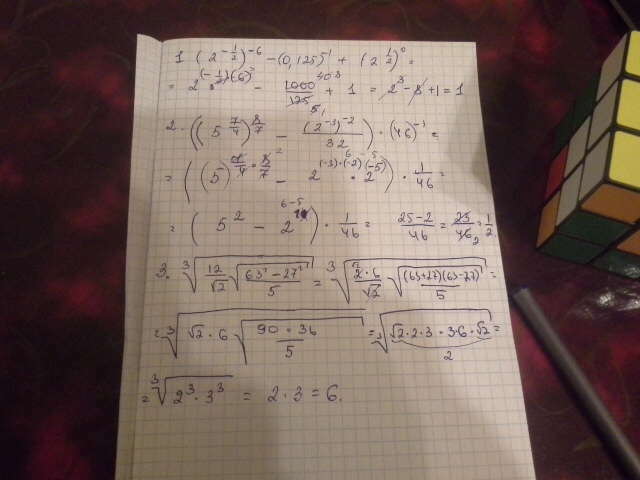 1 (2^{-1/2})^{-6} - (0,125)^{-1} + (2^{1/2})^0 =
= 2^{(-1/2)·(-6)} - 1000/125 + 1 = 2^3 - 8 + 1 = 1
2. ((5^{7/4})^{8/7} - (2^{-3})^{-2}/32) · (46)^{-1} =
= ((5)^{7/4 · 8/7} - 2^{(-3)·(-2)} · 2^{(-5)}) · 1/46 =
= (5^2 - 2^{6-5}) · 1/46 = 25-2/46 = 23/46 = 1/2.
3. ∛(12/√2 √(63² - 27²/5)) = ∛(2·6/√2 √((63+27)(63-27)/5)) =
= ∛(√2 · 6 √(90 · 36/5)) = ∛(√2 · 2 · 3 · 3 · 6 · √2) =
2
= ∛(2^3 · 3^3) = 2 · 3 = 6.